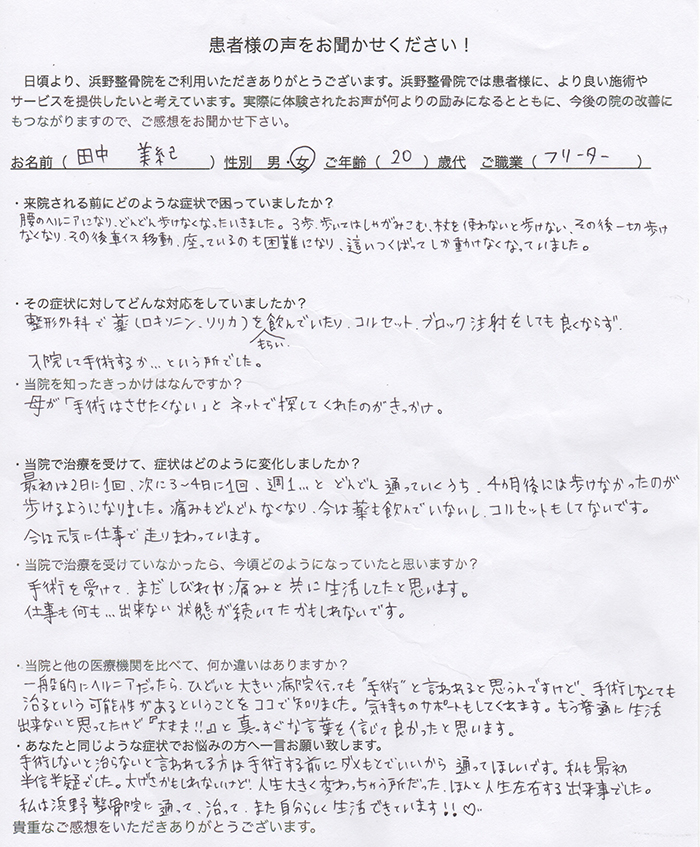 患者様の声をお聞かせください！
日頃より、浜野整骨院をご利用いただきありがとうございます。浜野整骨院では患者様に、より良い施術や
サービスを提供したいと考えています。実際に体験されたお声が何よりの励みになるとともに、今後の院の改善に
もつながりますので、ご感想をお聞かせ下さい。
お名前（ 田中 美紀 ）性別 男・女 ご年齢（ 20 ）歳代 ご職業（ フリーター ）
・来院される前にどのような症状で困っていましたか？
腰のヘルニアになり、どんどん歩けなくなったいきました。3歩、歩いてはしゃがみこむ、杖を使わないと歩けない、その後一切歩け
なくなり、その後車イス移動、座っているのも困難になり、這いつくばってしか動けなくなっていました。
・その症状に対してどんな対応をしていましたか？
整形外科で薬(ロキソニン、リリカ)を飲んでいたり、コルセット、ブロック注射をしても良くならず、
もらい
入院して手術するか…という所でした。
・当院を知ったきっかけはなんですか？
母が「手術はさせたくない」とネットで探してくれたのがきっかけ。
・当院で治療を受けて、症状はどのように変化しましたか？
最初は2日に1回、次に3〜4日に1回、週1…とどんどん通っていくうち、4ヵ月後には歩けなかったのが
歩けるようになりました。痛みもどんどんなくなり、今は薬も飲んでいないし、コルセットもしてないです。
今は元気に仕事で走りまわっています。
・当院で治療を受けていなかったら、今頃どのようになっていたと思いますか？
手術を受けて、まだしびれや痛みと共に生活してたと思います。
仕事も何も…出来ない状態が続いてたかもしれないです。
・当院と他の医療機関を比べて、何か違いはありますか？
一般的にヘルニアだったら、ひどいと大きい病院行っても"手術"と言われると思うんですけど、手術しなくても
治るという可能性があるということをココで知りました。気持ちのサポートもしてくれます。もう普通に生活
出来ないと思ってたけど『大丈夫!!』と真っすぐな言葉を信じて良かったと思います。
・あなたと同じような症状でお悩みの方へ一言お願い致します。
手術しないと治らないと言われてる方は手術する前にダメもとでいいから通ってほしいです。私も最初
半信半疑でした。大げさかもしれないけど、人生大きく変わっちゃう所だった、ほんと人生左右する出来事でした。
私は浜野整骨院に通って、治って、また自分らしく生活できています!!♡
貴重なご感想をいただきありがとうございます。